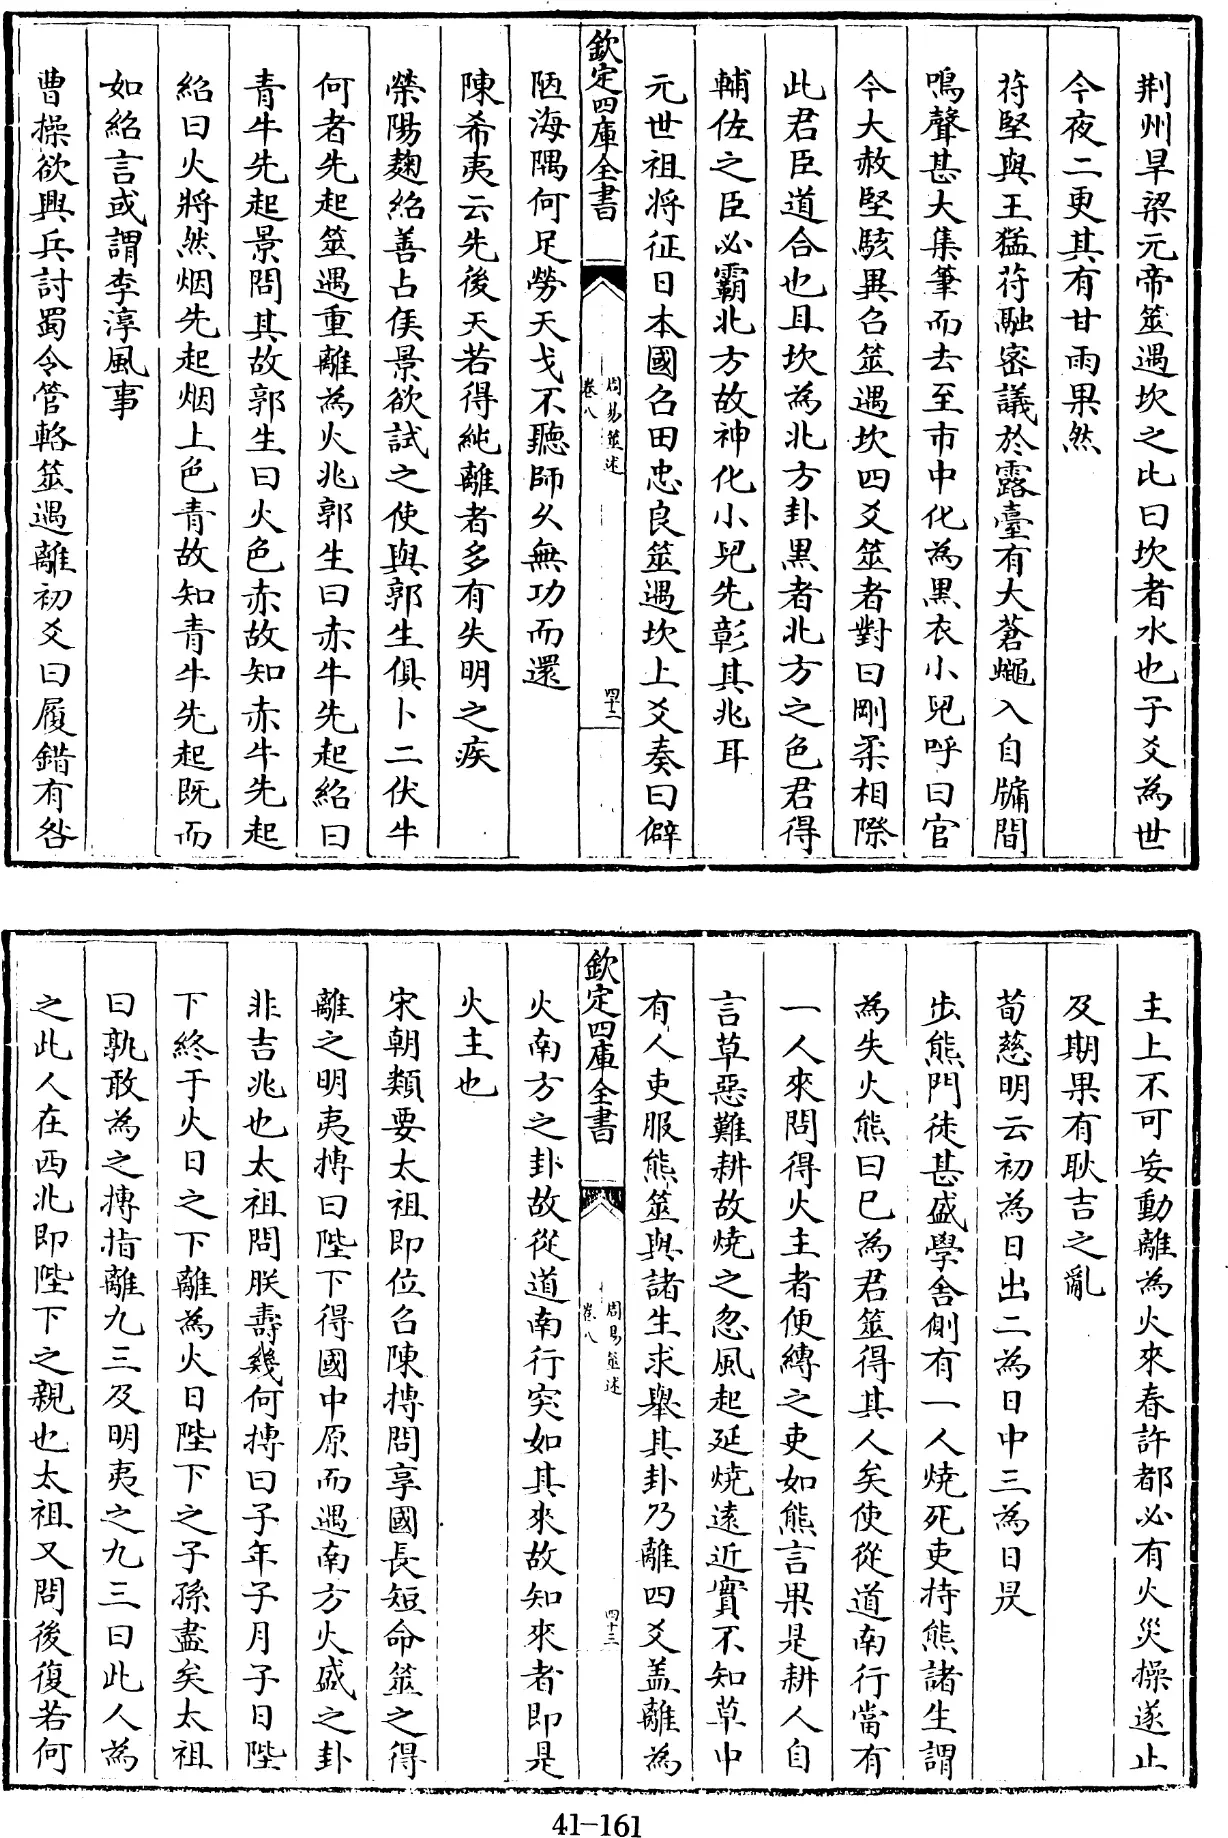 荆州旱梁元帝筮遇坎之比曰坎者水也子爻為世
今夜二更其有甘雨果然
苻堅與王猛苻融密議於露臺有大蒼蠅入自牖間
鳴聲甚大集筆而去至市中化為黒衣小兒呼曰官
今大赦堅駭異召筮遇坎四爻筮者對曰剛柔相際
此君臣道合也且坎為北方卦黒者北方之色君得
輔佐之臣必霸北方故神化小兒先彰其兆耳
元世祖將征日本國召田忠良筮遇坎上爻奏曰僻
欽定四庫全書
周易筮述
卷八
四十二
陋海隅何足勞天戈不聽師乆無功而還
陳希夷云先後天若得純離者多有失明之疾
滎陽麴紹善占侯景欲試之使與郭生俱卜二伏牛
何者先起筮遇重離為火兆郭生曰赤牛先起紹曰
青牛先起景問其故郭生曰火色赤故知赤牛先起
紹曰火將然烟先起烟上色青故知青牛先起既而
如紹言或謂李淳風事
曹操欲興兵討蜀令管輅筮遇離初爻曰履錯有咎
主上不可妄動離為火來春許都必有火災操遂止
及期果有耿吉之亂
荀慈明云初為日出二為日中三為日昃
步熊門徒甚盛學舎側有一人燒死吏持熊諸生謂
為失火熊曰已為君筮得其人矣使從道南行當有
一人來問得火主者便縛之吏如熊言果是耕人自
言草惡難耕故燒之忽風起延燒逺近實不知草中
有人吏服熊筮與諸生求舉其卦乃離四爻盖離為
欽定四庫全書
周易筮述
卷八
四十三
火南方之卦故從道南行突如其來故知來者即是
火主也
宋朝類要太祖即位召陳摶問享國長短命筮之得
離之明夷摶曰陛下得國中原而遇南方火盛之卦
非吉兆也太祖問朕壽幾何摶曰子年子月子日陛
下終于火日之下離為火日陛下之子孫盡矣太祖
曰孰敢為之摶指離九三及明夷之九三曰此人為
之此人在西北即陛下之親也太祖又問後復若何
41-161